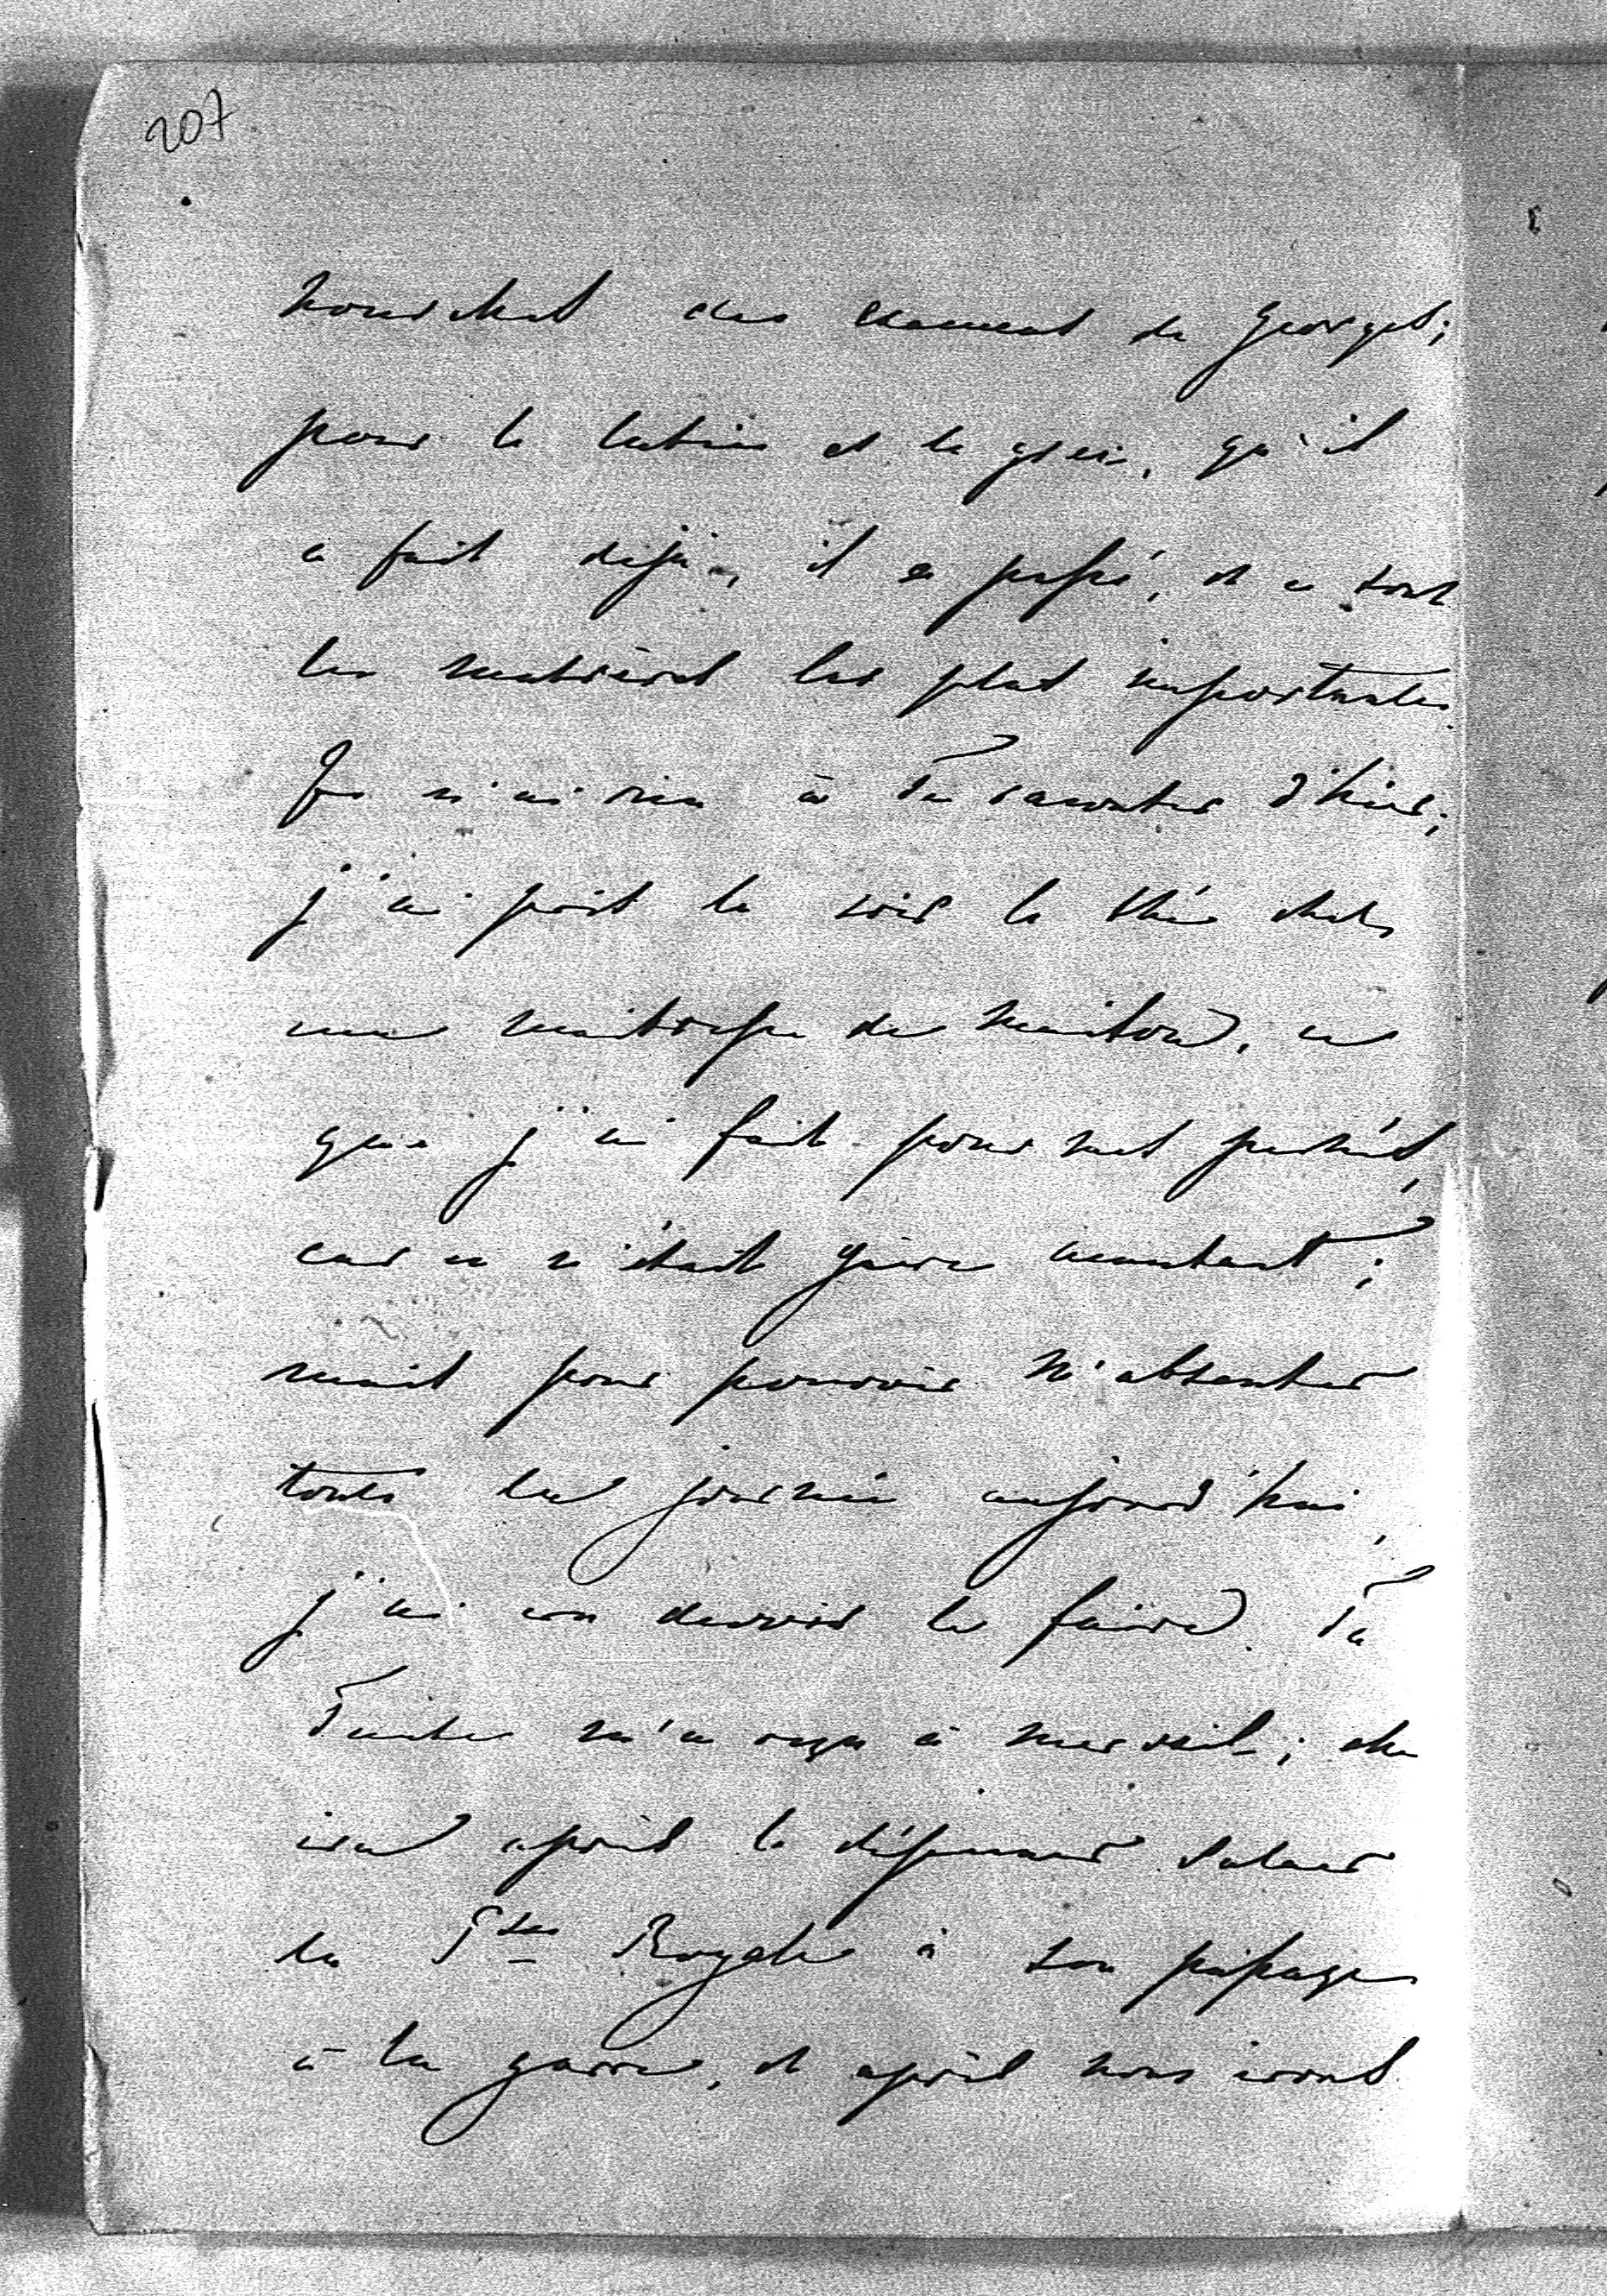 207
des examens de Georges;
pour le latin et le grec, qu'il
a fait déjà, il a passé, et ce sont
les matières les plus importantes.
Je n'ai rien à Te raconter d'hier;
j'ai pris le soir le thé chez
ma maitresse de maison, ce
que j'ai fait pour mes pechés,
car ce n'était guère amusant;
mais pour pouvoir m'absenter
toute la journée aujourd'hui,
j'ai cru devoir le faire. Ta
Tante m'a reçu à merveil; elle
ira après le déjeuner saluer
la Psse Royale à son passage
à la garre, et après nous irons